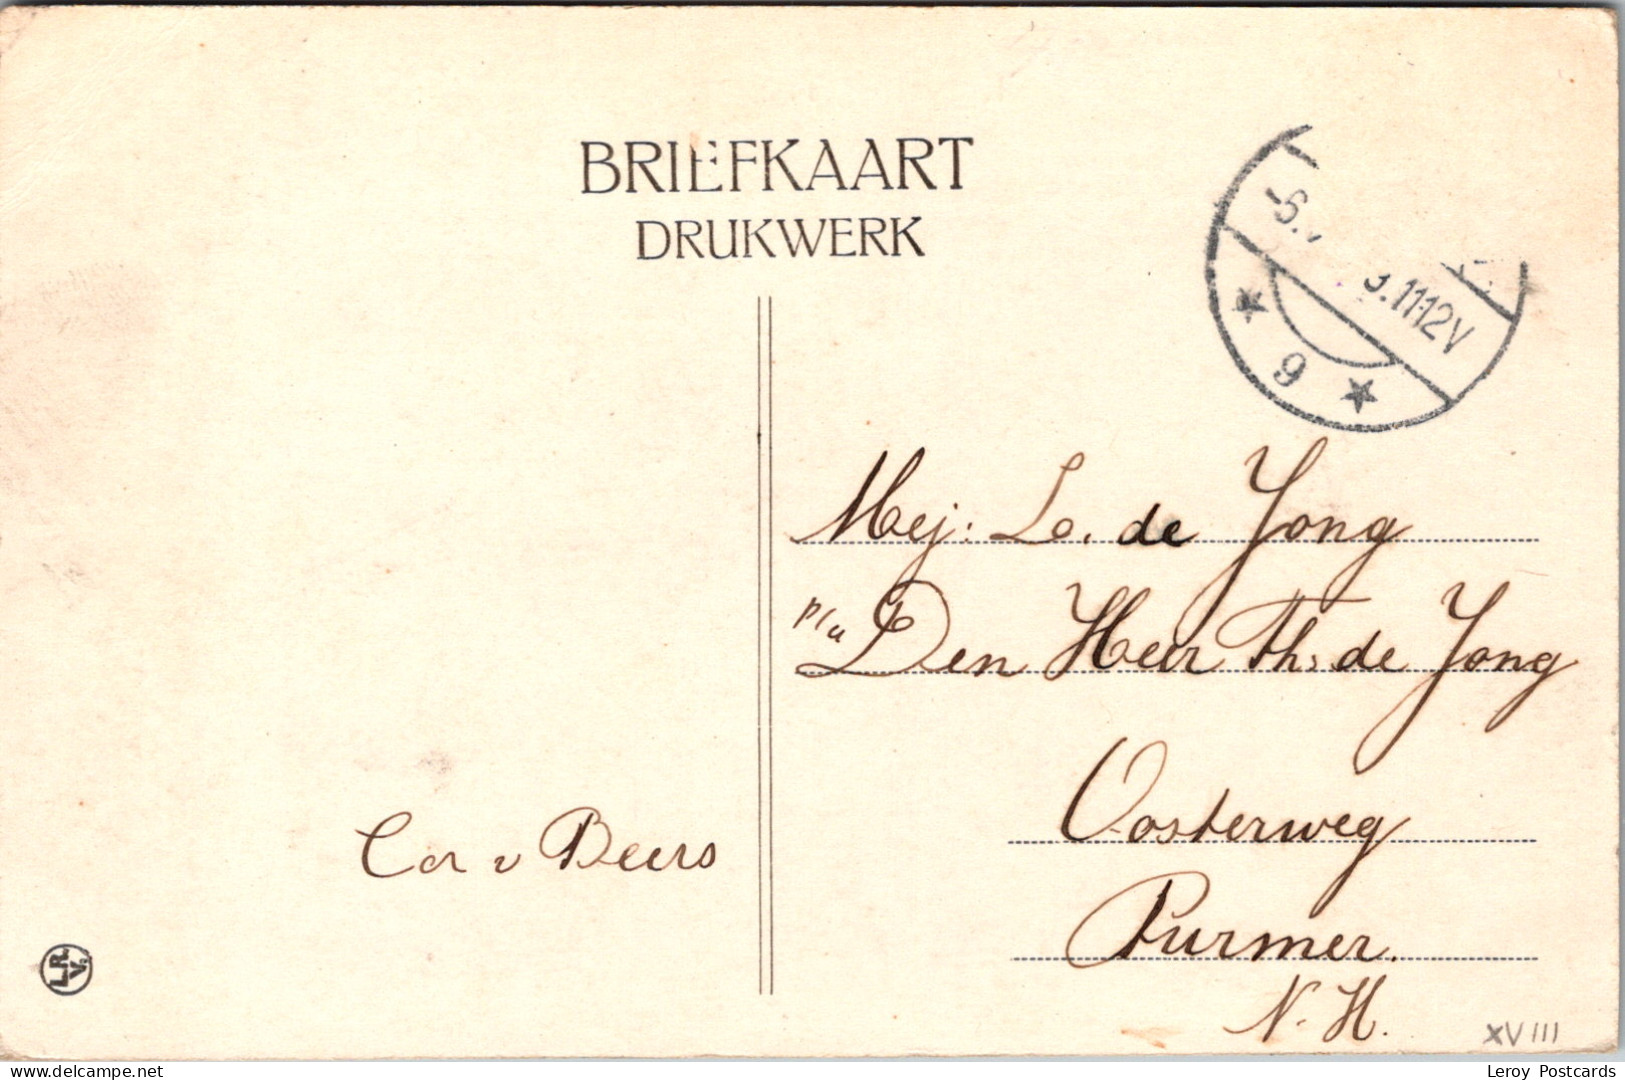 BRIEFKAART
DRUKWERK
3.11-12V
9
Mej. L. de Jong
p/a Den Heer Th. de Jong
Oosterweg
Purmer.
N. H.
Cor v Beers
L.R.
V.
XVIII
delcampe.net
Leroy Postcards